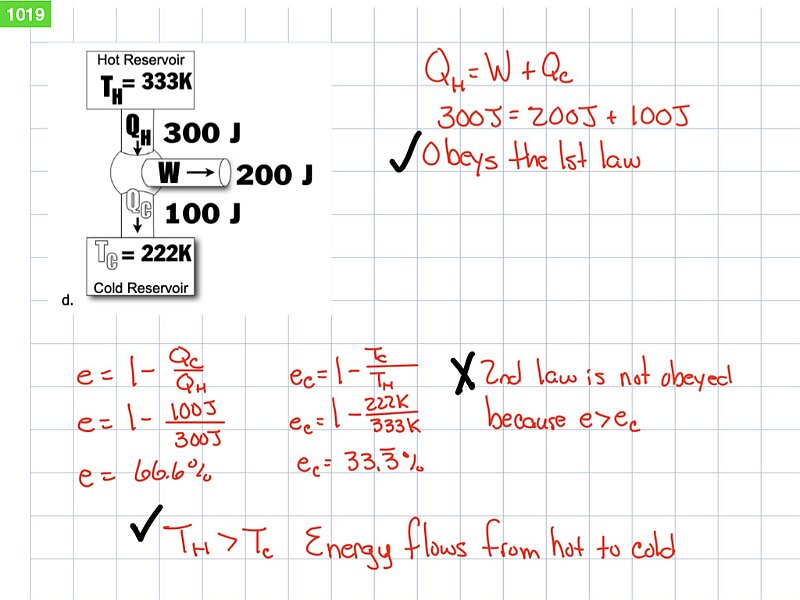 1019
Hot Reservoir
T_H = 333K
Q_H 300 J
W → 200 J
Q_C 100 J
T_C = 222K
Cold Reservoir
d.
Q_H = W + Q_C
300J = 200J + 100J
✓ Obeys the 1st law
e = 1 - Q_C/Q_H
e = 1 - 100J/300J
e = 66.6%
e_C = 1 - T_C/T_H
e_C = 1 - 222K/333K
e_C = 33.3̅%
X 2nd law is not obeyed
because e > e_C
✓ T_H > T_C Energy flows from hot to cold